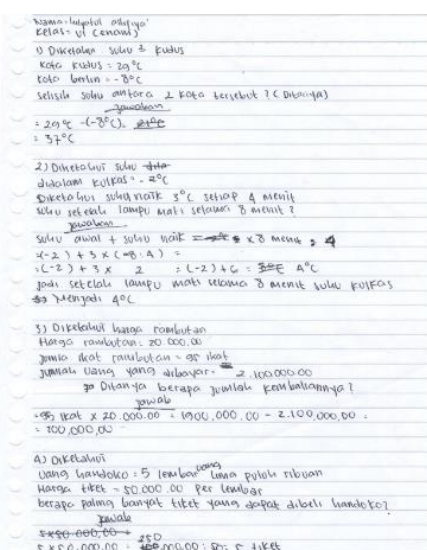 Nama: lulyatul asfiya'
Kelas: VI (enam)
1) Diketahui suhu di kudus
Kota Kudus = 29°C
Kota berlin = -8°C
selisih suhu antara 2 kota tersebut? (Ditanya)
jawaban
= 29°C -(-8°C).
= 37°C
2) Diketahui suhu
didalam kulkas = -2°C
Diketahui suhu naik 3°C setiap 4 menit
suhu setelah lampu mati selama 8 menit?
jawaban
suhu awal + suhu naik = x 8 menit : 4
=(-2) + 3 x (8:4) =
=(-2) + 3 x 2 = (-2)+6 = 4°C
jadi setelah lampu mati selama 8 menit suhu kulkas
Menjadi 4°C
3) Diketahui harga rambutan
Harga rambutan: 20.000,00
jumla ikat rambutan = 95 ikat
jumlah uang yang dibayar = 2.100.000.00
Ditanya berapa jumlah kembaliannya?
jawab
=95 ikat x 20.000.00 = 1900.000.00 - 2.100.000,00 =
= 200.000,00
4) Diketahui
uang handoko: 5 lembar uang lima puluh ribuan
Harga tiket = 50.000.00 per lembar
berapa paling banyak tiket yang dapat dibeli handoko?
jawab
5x50.000,00 =
5 x 50.000.00 = 250.000.00: 50= 5 tiket